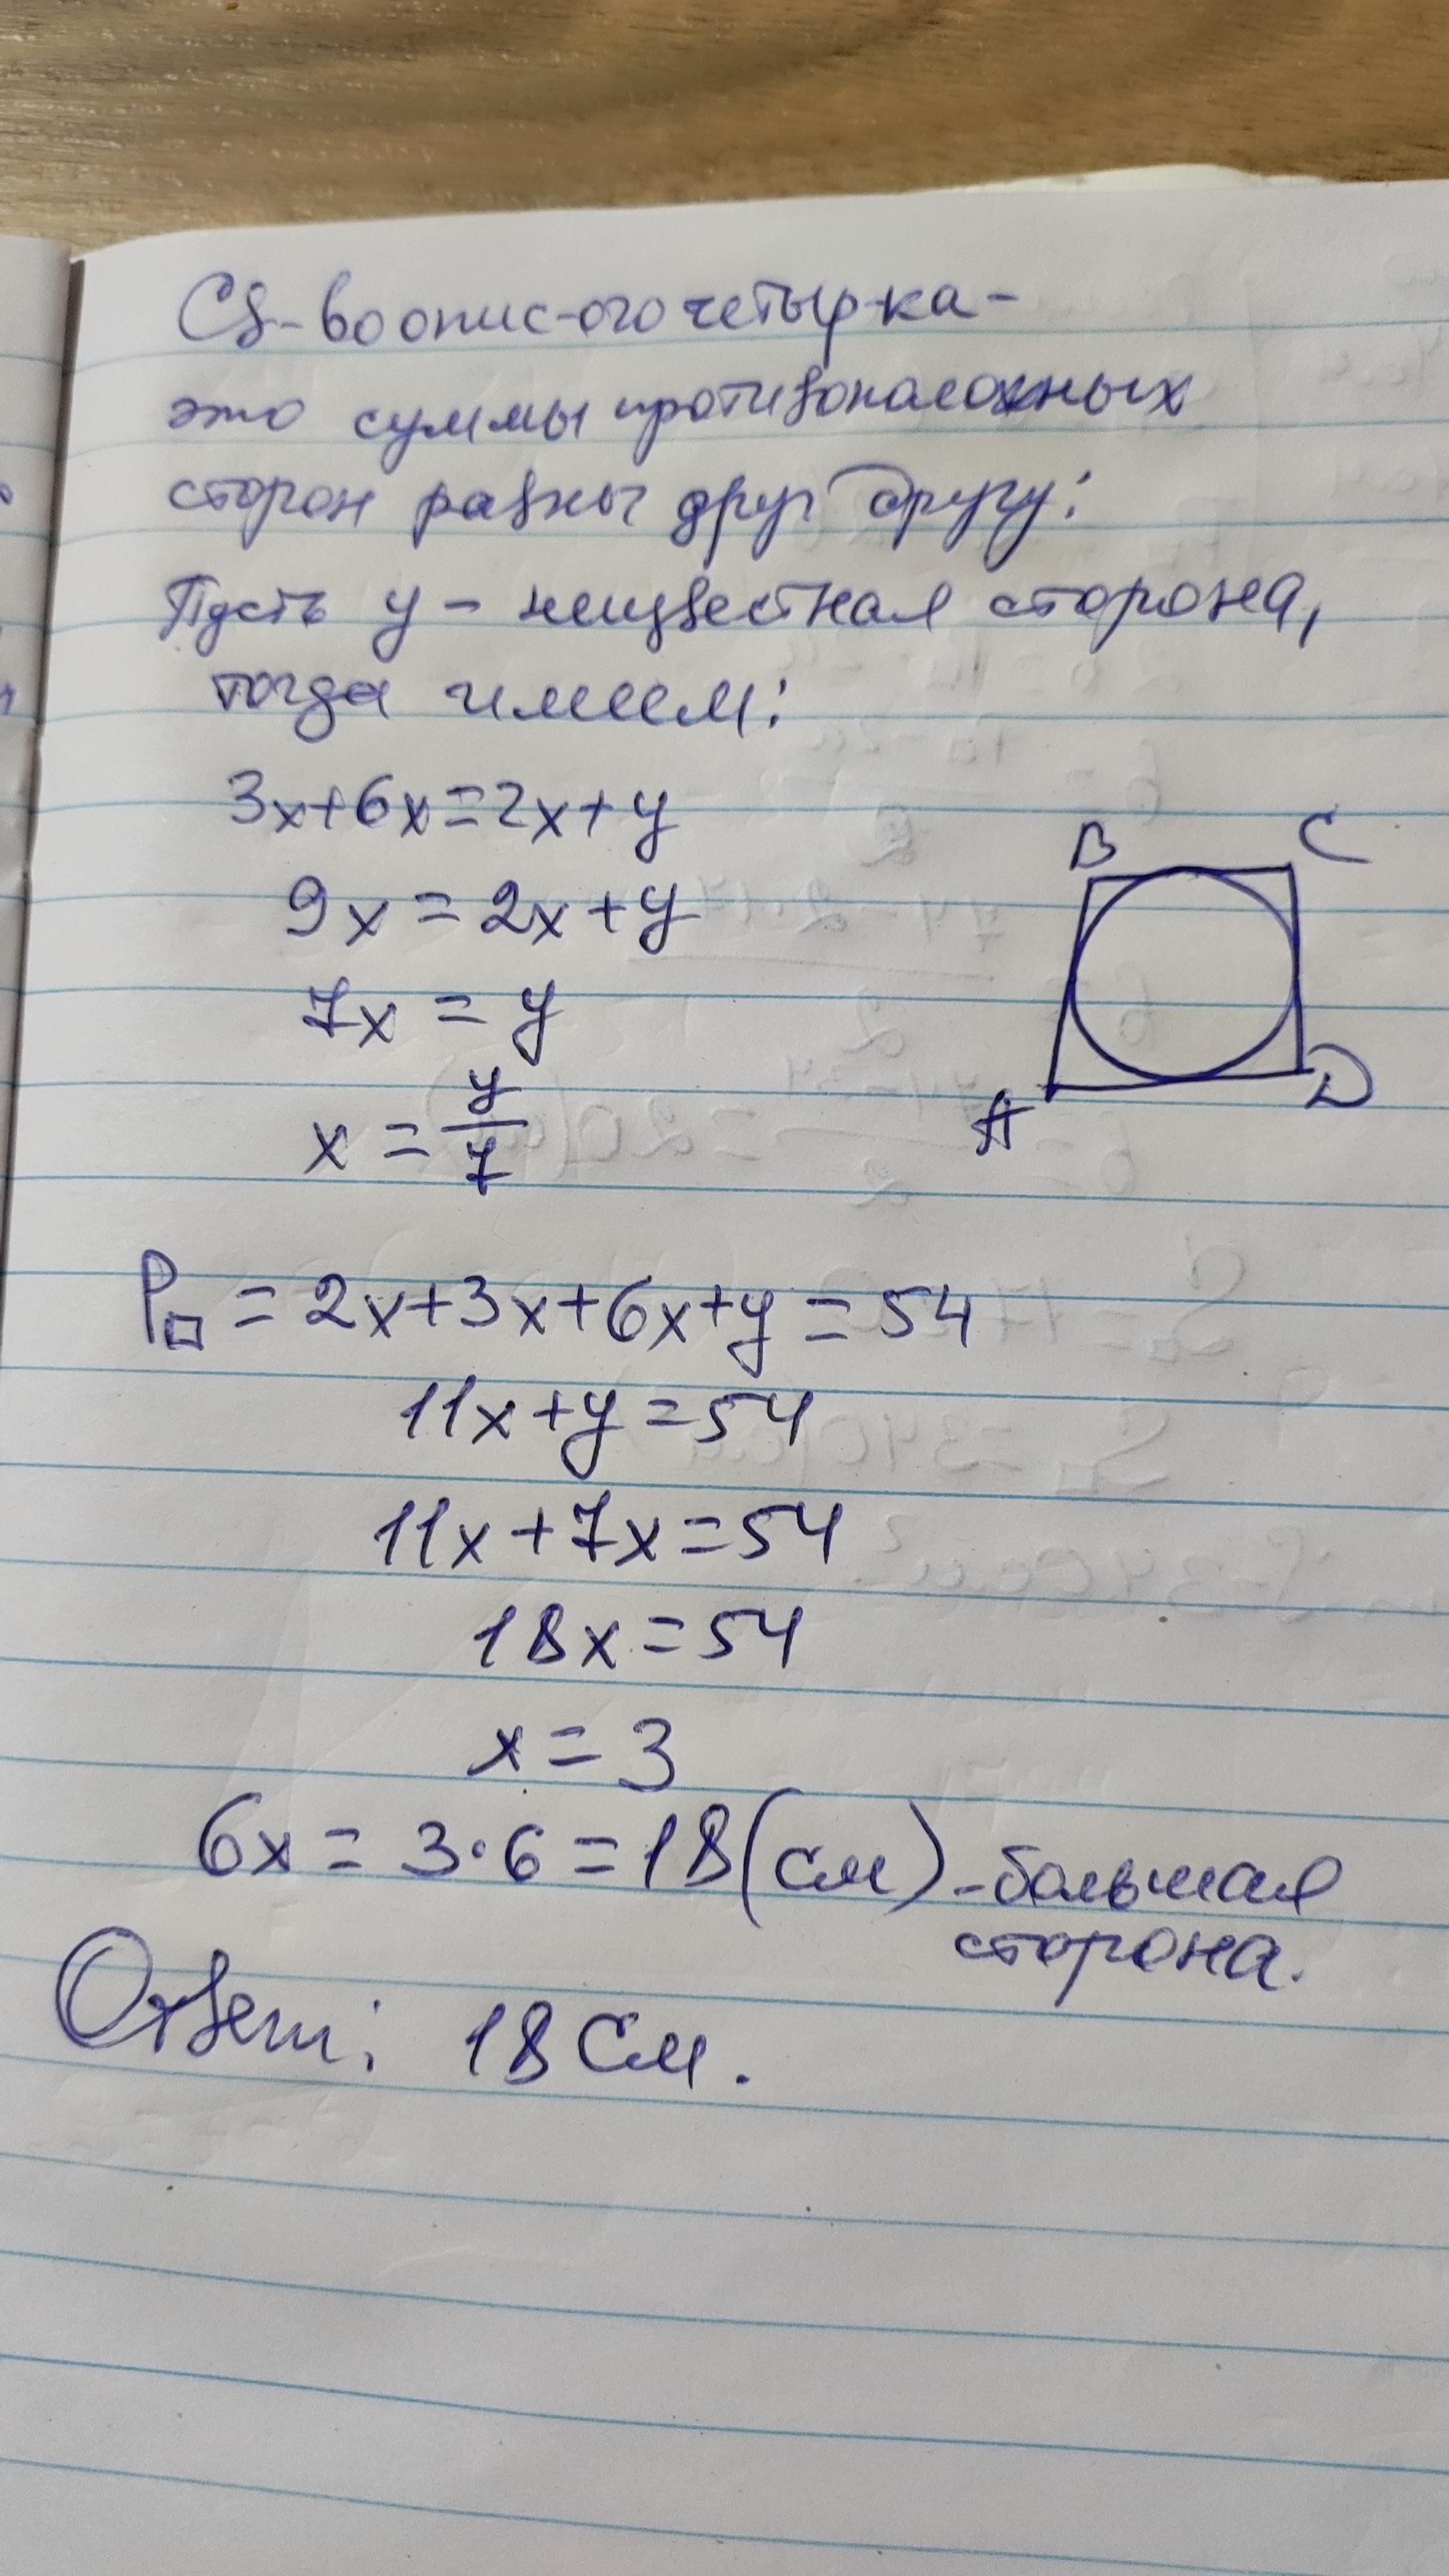 Св-во опис-ого четыр-ка-
это суммы противоположных
сторон равны друг другу:
Пусть y - неизвестная сторона,
тогда имеем:
3x+6x=2x+y
9x=2x+y
7x=y
x=y/7
B C
A D
P□=2x+3x+6x+y=54
11x+y=54
11x+7x=54
18x=54
x=3
6x=3·6=18(см)-большая
сторона.
Ответ: 18 см.